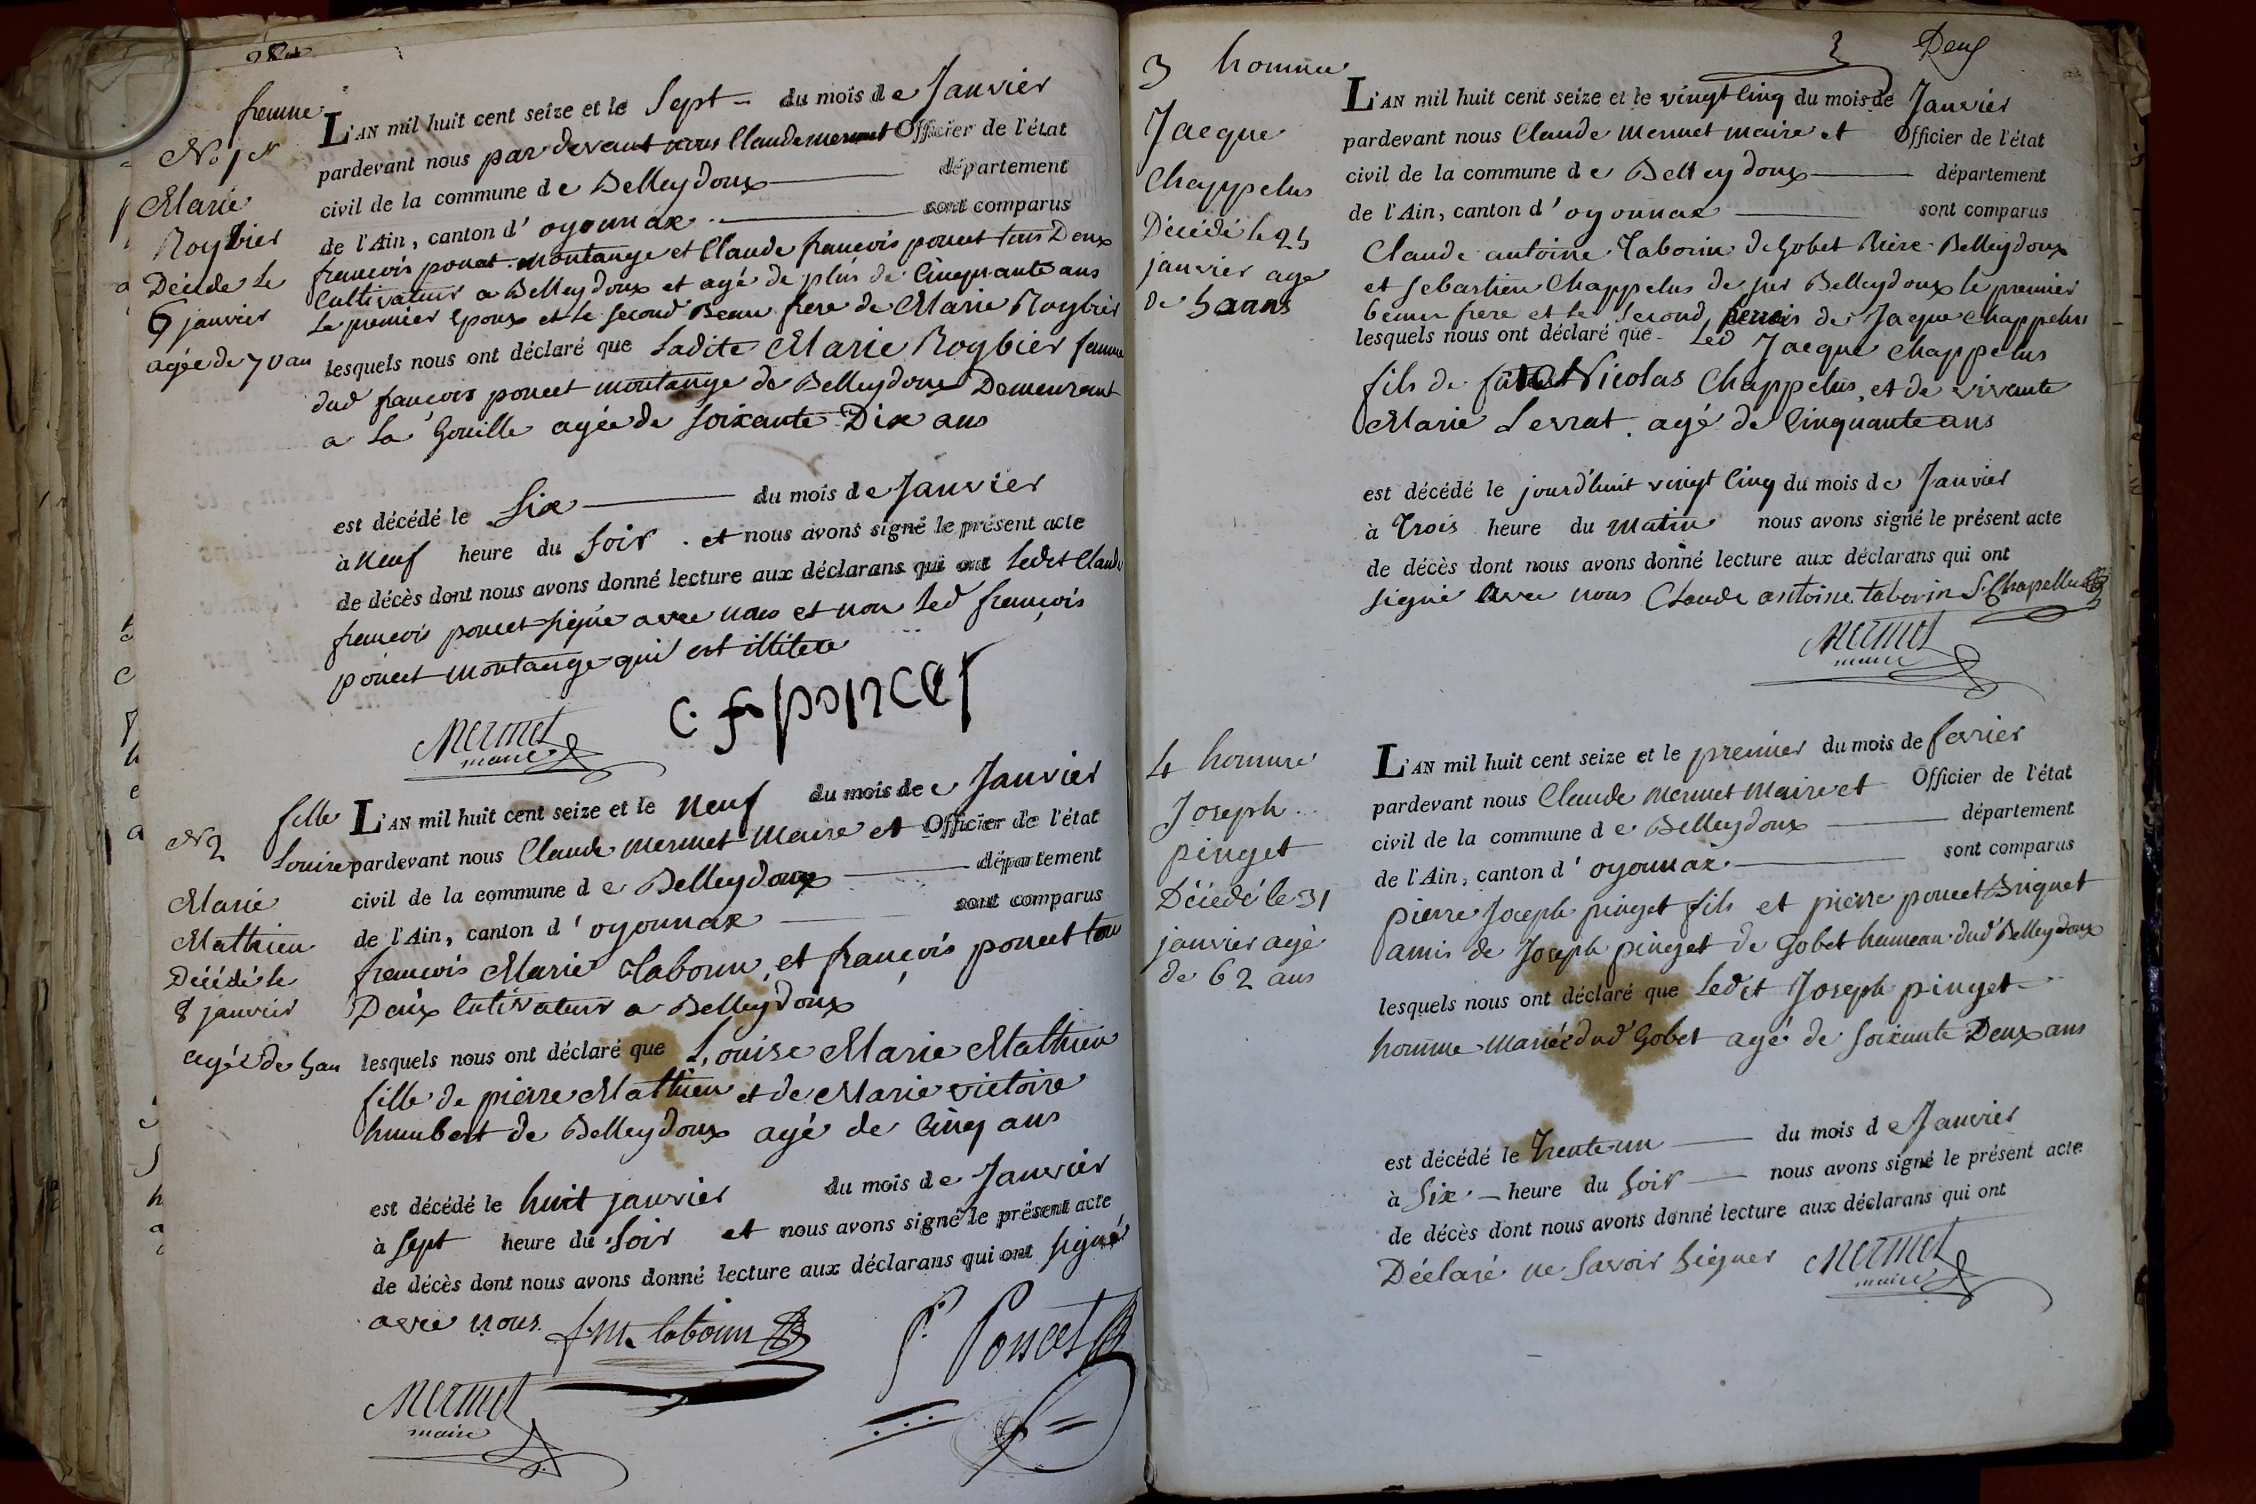 284
femme
No 1er
Marie
Roybier
Décidé Le
6 janvier
agée de 70 an
L'AN mil huit cent seize et le Sept du mois de Janvier
pardevant nous par devant nous Claude mermet Officier de l'état
civil de la commune de Belleydoux département
de l'Ain, canton d' oyonnax sont comparus
francois poncet montange et Claude francois poncet tous Deux
Cultivateur a Belleydoux et agé de plus de Cinquante ans
Le premier Epoux et Le second Beau frere de Marie Roybier
lesquels nous ont déclaré que Ladite Marie Roybier femme
dud francois poncet montange de Belleydoux Demeurant
a La Gouille agée de soixante Dix ans
est décédé le Six du mois de Janvier
à Neuf heure du Soir et nous avons signé le présent acte
de décès dont nous avons donné lecture aux déclarans qui ont Ledit Claude
francois poncet signé avec nous et non Led françois
poncet montange qui est illitere
Mermet
maire
C. f poncet
fille
N 2
Louise
Marie
Mathieu
Décédé le
8 janvier
agée de 5 an
L'AN mil huit cent seize et le Neuf du mois de Janvier
pardevant nous Claude Mermet Maire et Officier de l'état
civil de la commune de Belleydoux département
de l'Ain, canton d' oyonnax sont comparus
françois Marie Taborin et françois poncet tous
Deux Cultivateur a Belleydoux
lesquels nous ont déclaré que Louise Marie Mathieu
fille de pierre Mathieu et de Marie victoire
humbert de Belleydoux agé de Cinq ans
est décédé le huit janvier du mois de Janvier
à Sept heure du Soir et nous avons signé le présent acte
de décès dont nous avons donné lecture aux déclarans qui ont signé
avec nous fm taborin
f. Poncet
Mermet
maire
3 Deux
3 homme
Jacque
Chappelus
Décédé le 25
janvier age
de 50 ans
L'AN mil huit cent seize et le vingt Cinq du mois de Janvier
pardevant nous Claude Mermet maire et Officier de l'état
civil de la commune de Belleydoux département
de l'Ain, canton d' oyonnax sont comparus
Claude antoine Taborin de Gobet Riere Belleydoux
et Sebastien Chappelus de sur Belleydoux le premier
beau frere et le second de Jacque Chappelus
lesquels nous ont déclaré que Led Jacque Chappelus
fils de Nicolas Chappelus et de vivante
Marie Levrat agé de Cinquante ans
est décédé le jourd'huit vingt Cinq du mois de Janvier
à Trois heure du Matin nous avons signé le présent acte
de décès dont nous avons donné lecture aux déclarans qui ont
signé avec nous Claude antoine taborin S. Chapellus
Mermet
maire
4 homme
Joseph
pinget
Décédé le 31
janvier agé
de 62 ans
L'AN mil huit cent seize et le premier du mois de fevrier
pardevant nous Claude Mermet Maire et Officier de l'état
civil de la commune de Belleydoux département
de l'Ain, canton d' oyonnax sont comparus
pierre Joseph pinget fils et pierre poncet Briquet
amis de Joseph pinget de Gobet hameau dud Belleydoux
lesquels nous ont déclaré que Ledit Joseph pinget
homme Marié dud Gobet agé de soixante Deux ans
est décédé le Trente un du mois de Janvier
à Six heure du Soir nous avons signé le présent acte
de décès dont nous avons donné lecture aux déclarans qui ont
Déclaré ne savoir signer Mermet
maire